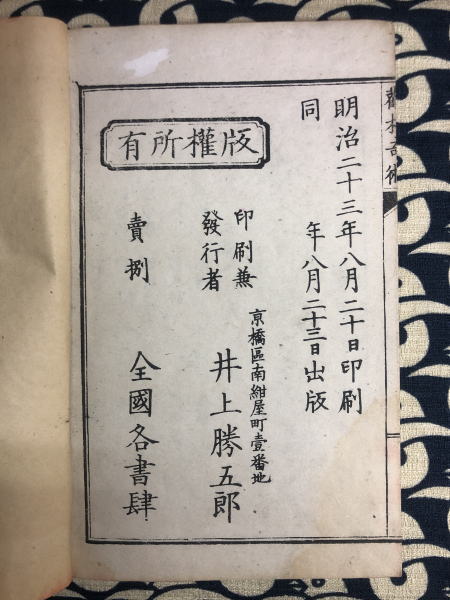 明治二十三年八月二十日印刷
同 年八月二十三日出版
版權所有
京橋區南紺屋町壹番地
印刷兼
發行者 井上勝五郎
賣捌 全國各書肆